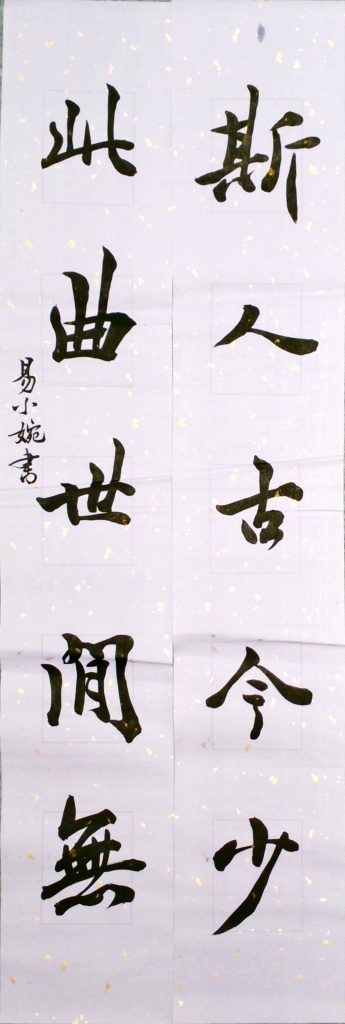 斯人古今少
此曲世間無
易小婉書